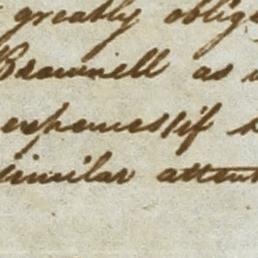 greatly oblig
Brownell as
expences if
similar attent